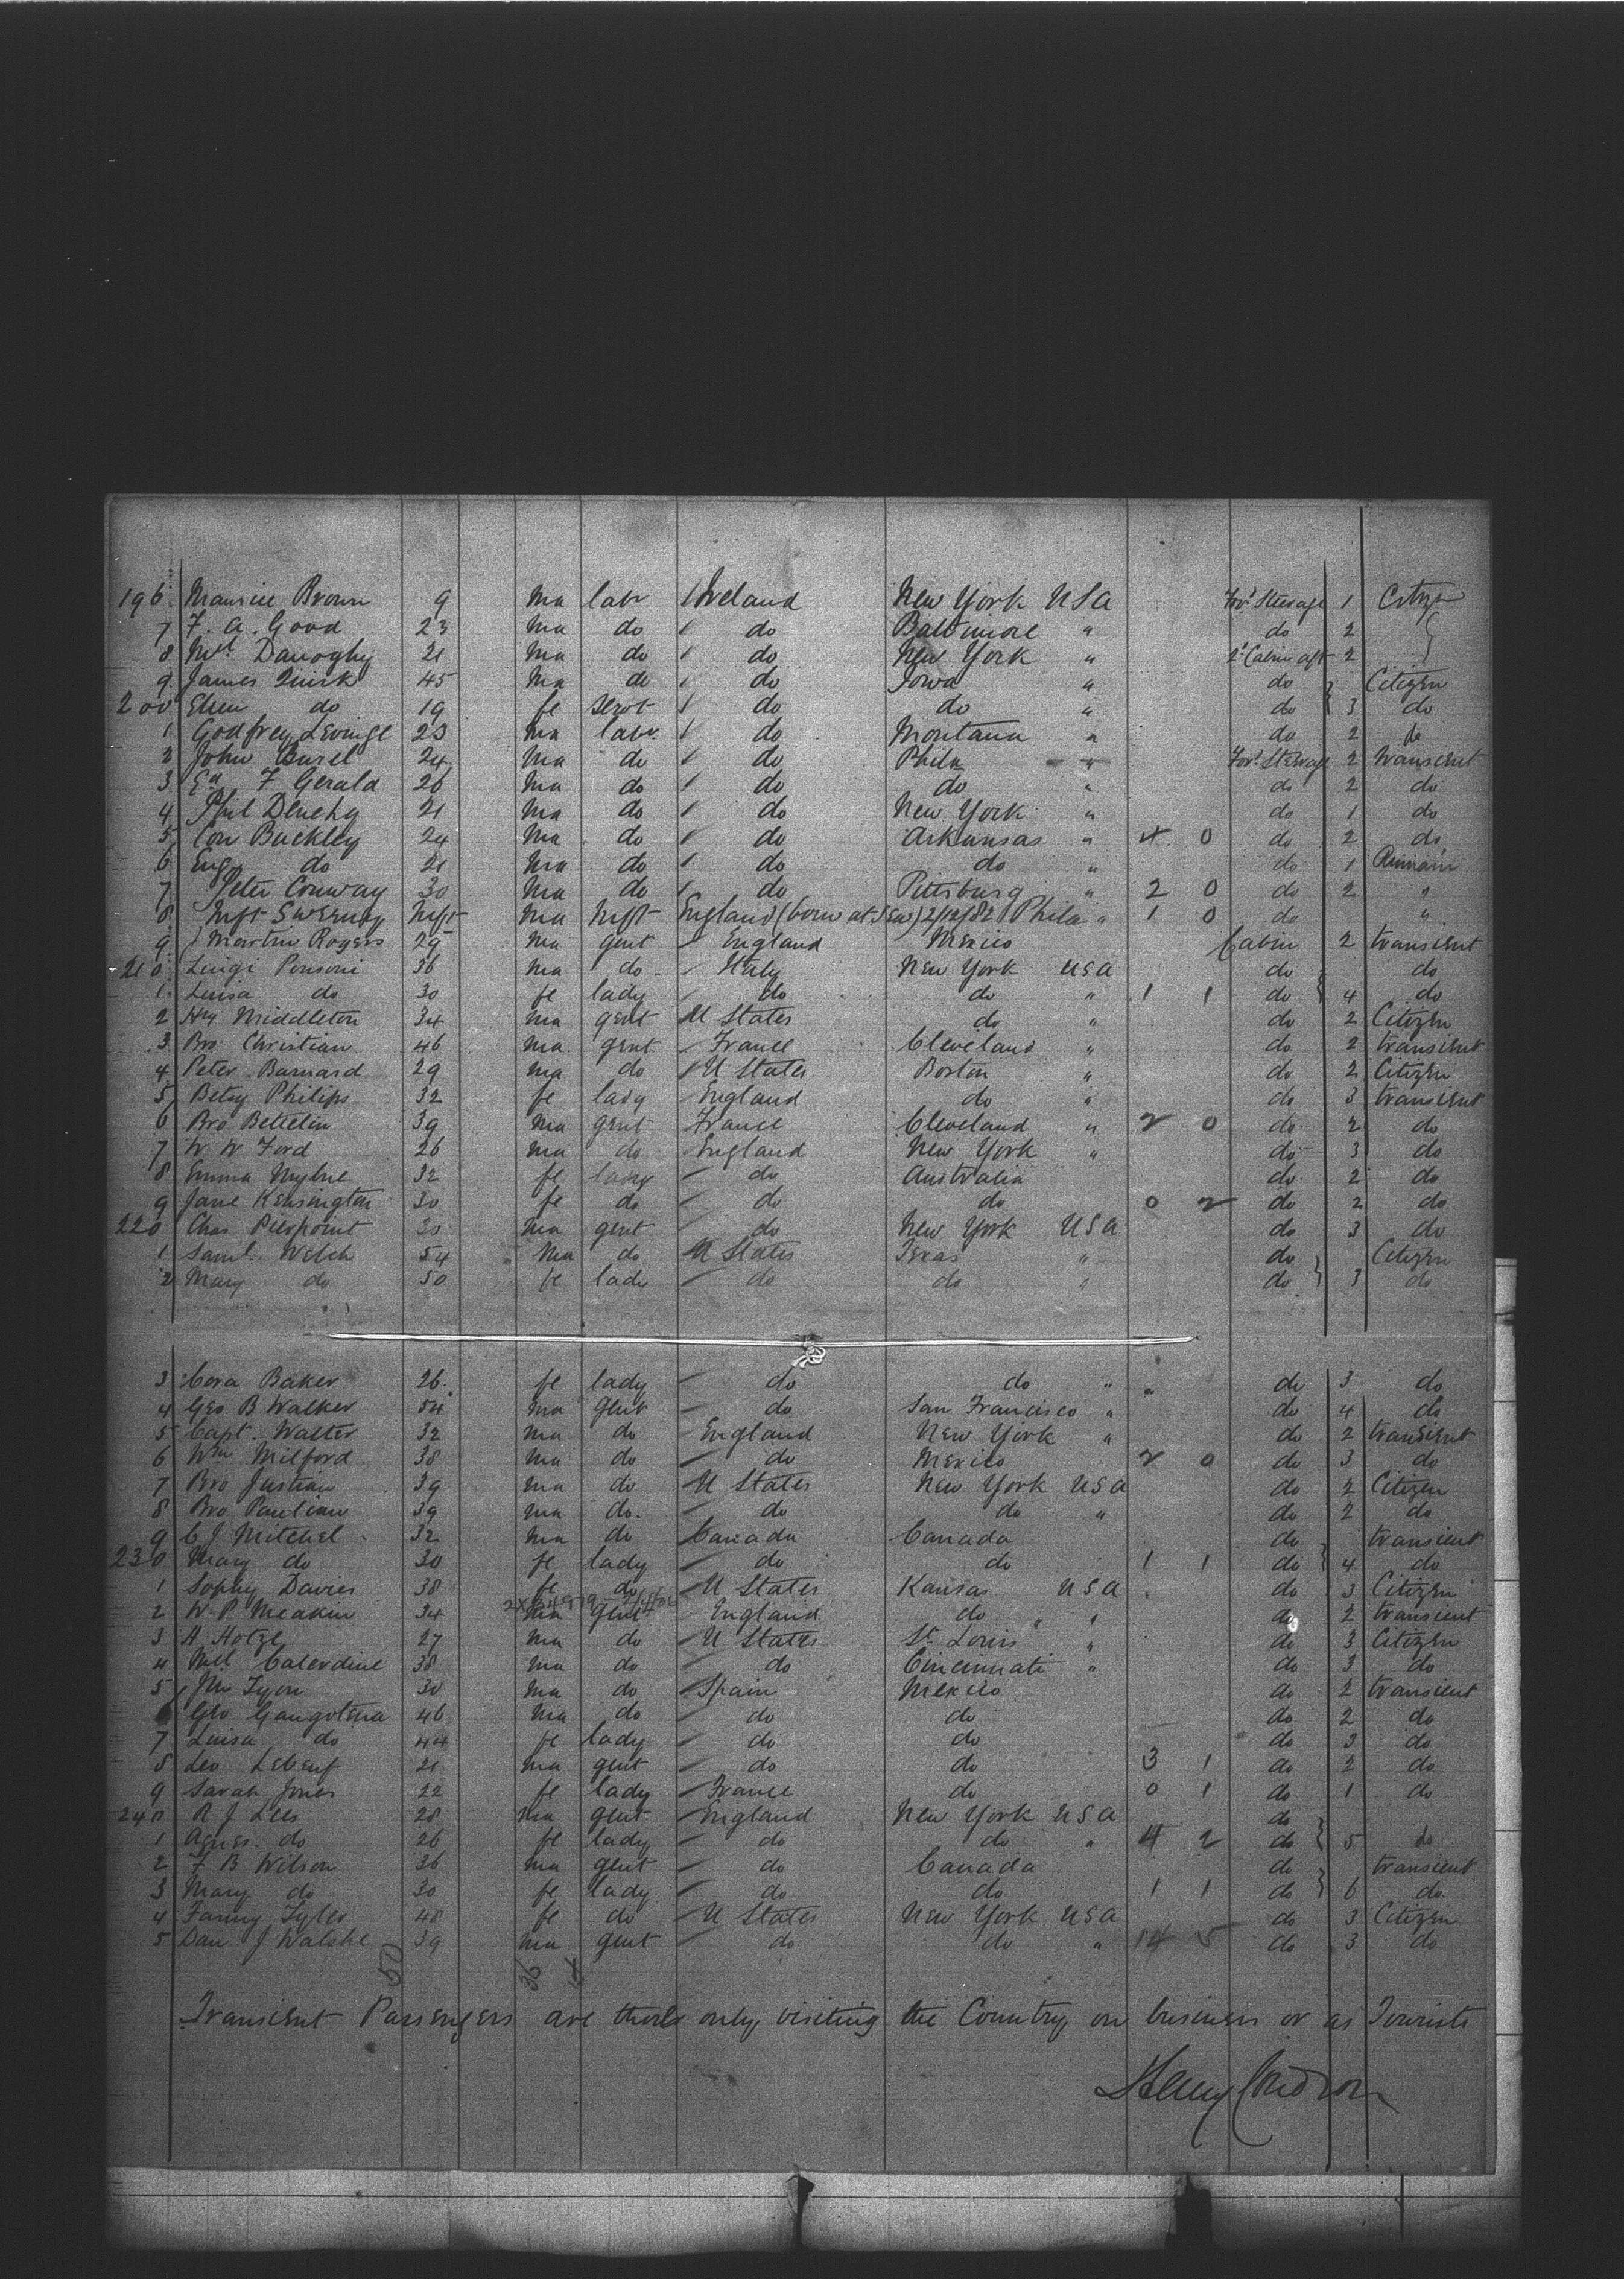 196 Maurice Brown 9 ma labr Ireland New York USA For'd Steerage 1 Citizen
7 F. A. Good 23 ma do do Baltimore " do 2
8 Danoghy 21 ma do do New York " 2d Cabin aft 2
9 James Quirk 45 ma do do Iowa " do Citizen
200 Ellen do 19 fe servt do do " do 3 do
1 Godfrey Levinge 23 ma labr do Montana " do 2 do
2 John Bursel 24 ma do do Phila " For'd Steerage 2 transient
3 Ed F Gerald 26 ma do do do " do 2 do
4 Phil Denehy 21 ma do do New York " do 1 do
5 Con Buckley 24 ma do do Arkansas " 4 0 do 2 do
6 Eug do 21 ma do do do " do 1 Remain
7 Peter Conway 30 ma do do Pittsburg " 2 0 do 2 "
8 Inft Sweeney Inft ma Inft England (born at Sea) 2/12/82 Phila " 1 0 do "
9 J Martin Rogers 29 ma gent England Mexico Cabin 2 transient
210 Luigi Ponsoni 36 ma do Italy New York USA do do
1 Luisa do 30 fe lady do do " 1 1 do 4 do
2 Hy Middleton 34 ma gent U States do " do 2 Citizen
3 Bro Christian 46 ma gent France Cleveland " do 2 transient
4 Peter Barnard 29 ma do U States Boston " do 2 Citizen
5 Betsy Philips 32 fe lady England do " do 3 transient
6 Bro Bettelin 39 ma gent France Cleveland " 2 0 do 2 do
7 W W Ford 26 ma do England New York " do 3 do
8 Emma 32 fe lady do Australia do 2 do
9 Jane Kensington 30 fe do do do 0 2 do 2 do
220 Chas Pierpoint 30 ma gent do New York USA do 3 do
1 Saml. Welch 54 ma do U States Texas " do Citizen
2 Mary do 50 fe lady do do " do 3 do
3 Cora Baker 26 fe lady do do " do 3 do
4 Geo B Walker 54 ma gent do San Francisco " do 4 do
5 Capt. Walter 32 ma do England New York " do 2 transient
6 Wm Milford 38 ma do do Mexico 2 0 do 3 do
7 Bro Justian 39 ma do U States New York USA do 2 Citizen
8 Bro Paulian 39 ma do do do " do 2 do
9 C J Mitchel 32 ma do Canada Canada do transient
230 Mary do 30 fe lady do do 1 1 do 4 do
1 Sophy Davies 38 fe do U States Kansas USA do 3 Citizen
2 W P Meakin 34 ma gent England do " do 2 transient
3 H Hotze 27 ma do U States St Louis " do 3 Citizen
4 Calerdine 38 ma do do Cincinnati " do 3 do
5 Jno Lyon 30 ma do Spain Mexico do 2 transient
6 Geo Gangotena 46 ma do do do do 2 do
7 Luisa do 44 fe lady do do do 3 do
8 Leo Lebeuf 21 ma gent do do 3 1 do 2 do
9 Sarah Jones 22 fe lady France do 0 1 do 1 do
240 R J Lees 28 ma gent England New York USA do
1 Agnes do 26 fe lady do do " 4 2 do 5 do
2 F B Wilson 36 ma gent do Canada do transient
3 Mary do 30 fe lady do do 1 1 do 6 do
4 Fanny Tyler 48 fe do U States New York USA do 3 Citizen
5 Dan J Walshe 39 ma gent do do " 14 5 do 3 do
50 36 14
Transient Passengers are those only visiting the Country on business or as Tourists